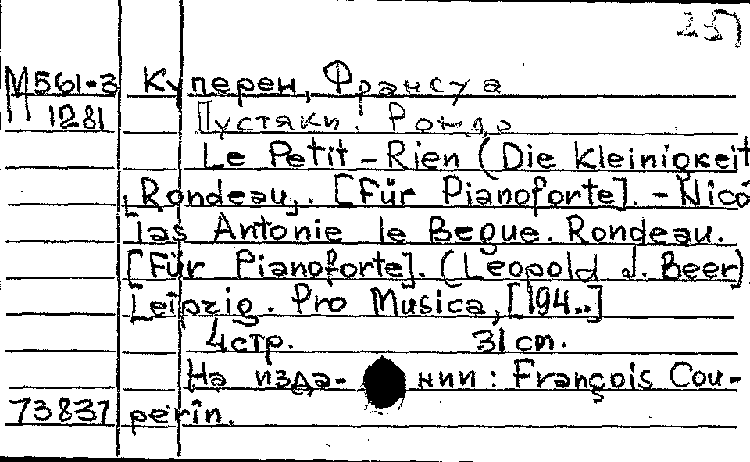 237
М561-3 Куперен, Франсуа
1281 Пустяки. Рондо
Le Petit-Rien (Die Kleinigkeit
, Rondeau,. [Für Pianoforte]. - Nico
las Antonie le Begue. Rondeau.
[Für Pianoforte]. (Leopold J. Beer)
Leipzig. Pro Musica, [194..]
4 стр. 31 cm.
На изда- нии: François Cou-
73837 perin.